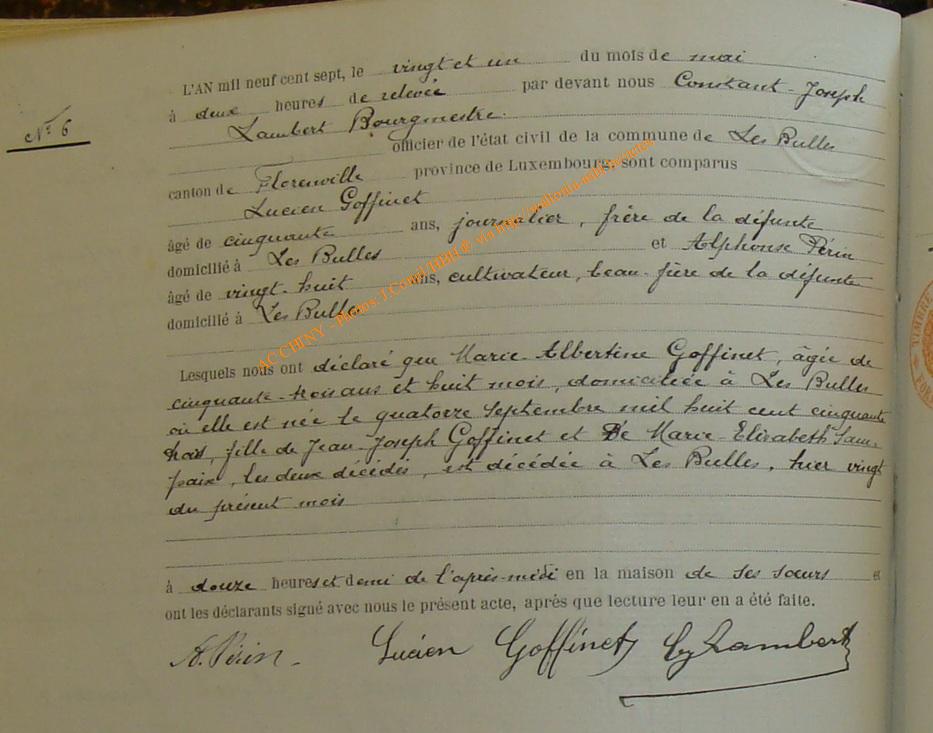 N° 6
L'AN mil neuf cent sept, le vingt et un du mois de mai
à deux heures de relevée par devant nous Constant-Joseph
Lambert Bourgmestre.
officier de l'état civil de la commune de Les Bulles
canton de Florenville province de Luxembourg, sont comparus
Lucien Goffinet
âgé de cinquante ans, journalier, frère de la défunte
domicilié à Les Bulles et Alphonse Périn
âgé de vingt-huit ans, cultivateur, beau-frère de la défunte
domicilié à Les Bulles
Lesquels nous ont déclaré que Marie-Albertine Goffinet, âgée de
cinquante-trois ans et huit mois, domiciliée à Les Bulles
où elle est née le quatorze Septembre mil huit cent cinquante
trois, fille de Jean-Joseph Goffinet et De Marie-Elisabeth Sam-
paix, les deux décédés, est décédée à Les Bulles, hier vingt
du présent mois
à douze heures et demi de l'après-midi en la maison de ses sœurs et
ont les déclarants signé avec nous le présent acte, après que lecture leur en a été faite.
A. Périn Lucien Goffinet Lambert
ACCHINY - Photos J.Cornil HBH © via http://wallonia-asbl
TIMBRE